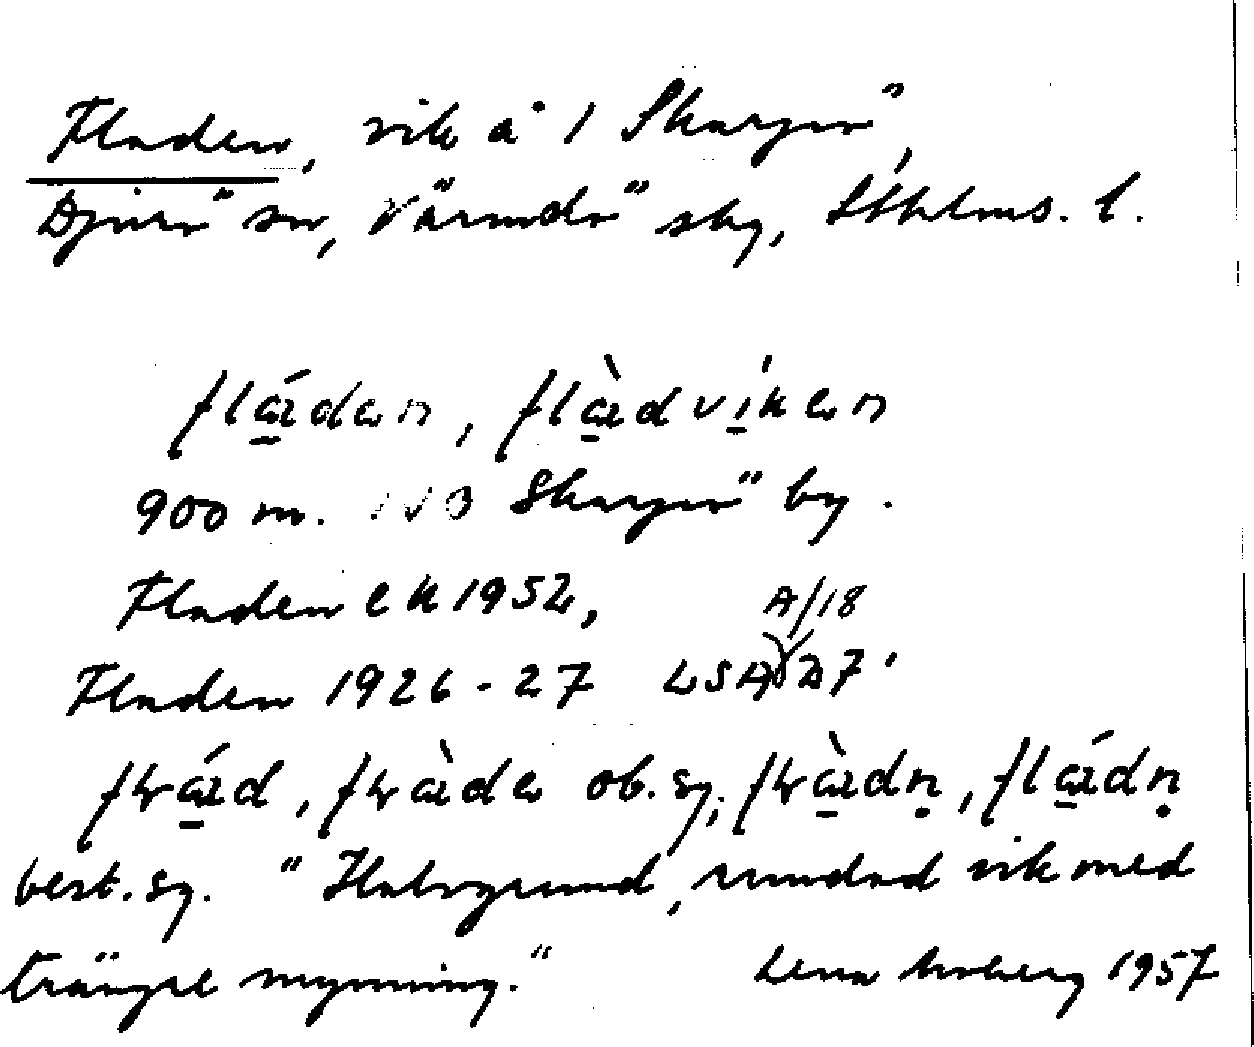 Fladen, vik å 1 Skarpö,
Djurö sn, Värmdö skg, Sthlms. l.
flá̱dan, flà̱dví̱ken
900 m. NV Skarpö by.
Fladen ek 1952,
A/18
Fladen 1926-27 LSA D7.
best. sg. "Halvgrund, rundad vik med
trängre mynning."
Lena Moberg 1957